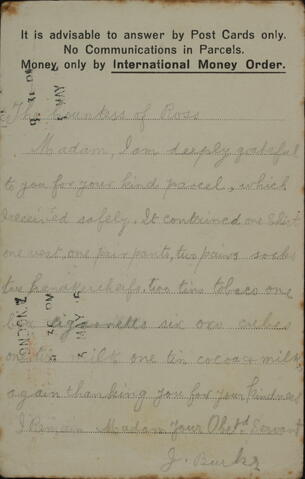 It is advisable to answer by Post Cards only.
No Communications in Parcels.
Money only by International Money Order.
The Countess of Ross
Madam, I am deeply grateful
to you for your kind parcel, which
I received safely. It contained one shirt
one vest, one pair pants, two pairs socks
two hankercheifs, two tins tobaco one
box cigaretts six oxo cubes
one tin milk one tin cocoa & milk
again thanking you for your kindness
I Remain Madam your Obetd Servant
J. Burke
LONDON
5 MAY
MAY